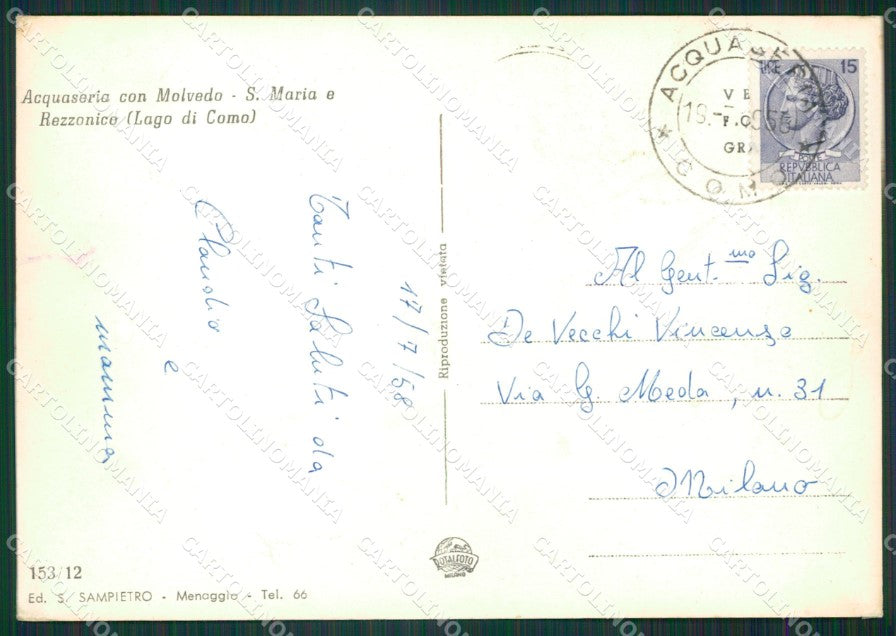 Acquaseria con Molvedo - S. Maria e
Rezzonico (Lago di Como)
17/7/58
Tanti Saluti da
Claudio
e
mamma
Riproduzione vietata
ACQUASERIA
COMO
15
REPVBBLICA
ITALIANA
Al Gent.mo Sig.
De Vecchi Vincenzo
Via G. Meda, n. 31
Milano
ROTALFOTO
MILANO
153/12
Ed. S. SAMPIETRO - Menaggio - Tel. 66
CARTOLINOMANIA